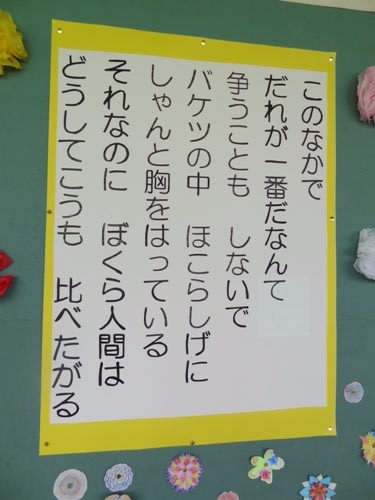 このなかで
だれが一番だなんて
争うことも　しないで
バケツの中　ほこらしげに
しゃんと胸をはっている
それなのに　ぼくら人間は
どうしてこうも　比べたがる